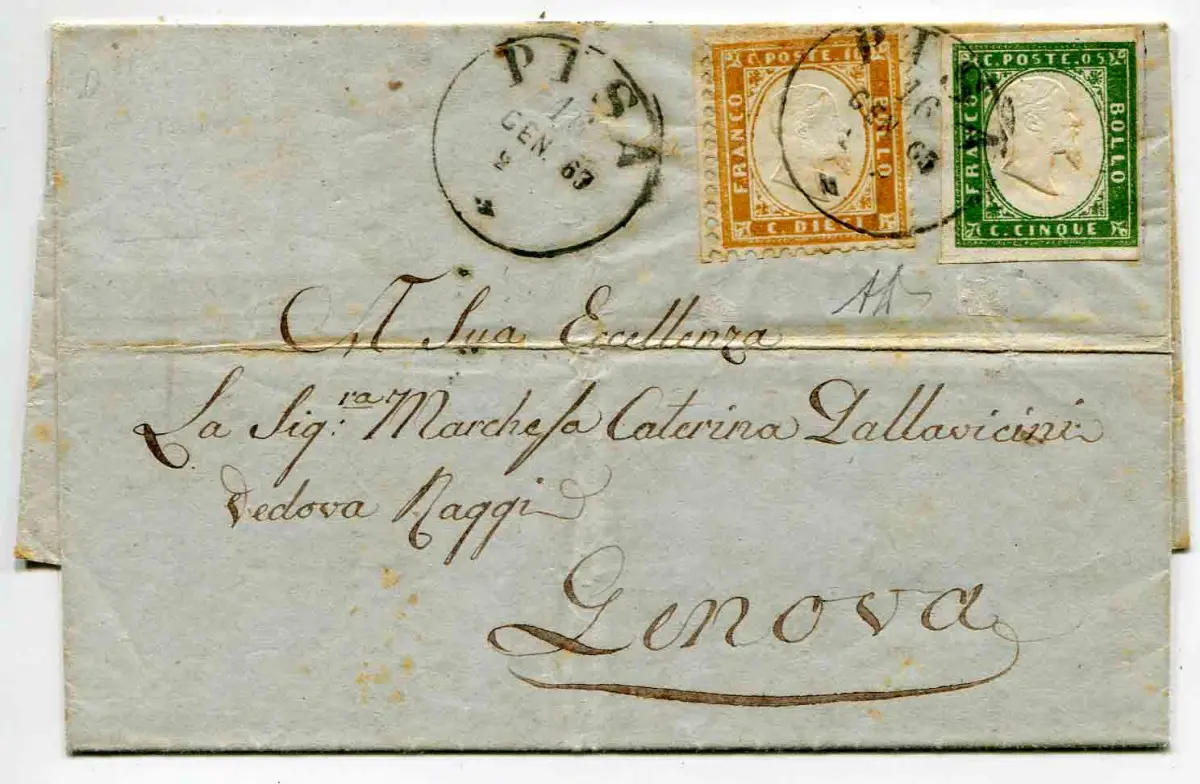 PISA
16
GEN. 63
2 M
C. POSTE. 10
FRANCO
BOLLO
C. DIECI
PISA
16
GEN. 63
M
C. POSTE. 05
FRANCO
BOLLO
C. CINQUE
A Sua Eccellenza
La Sig:ra Marchesa Caterina Pallavicini
Vedova Raggi
Genova